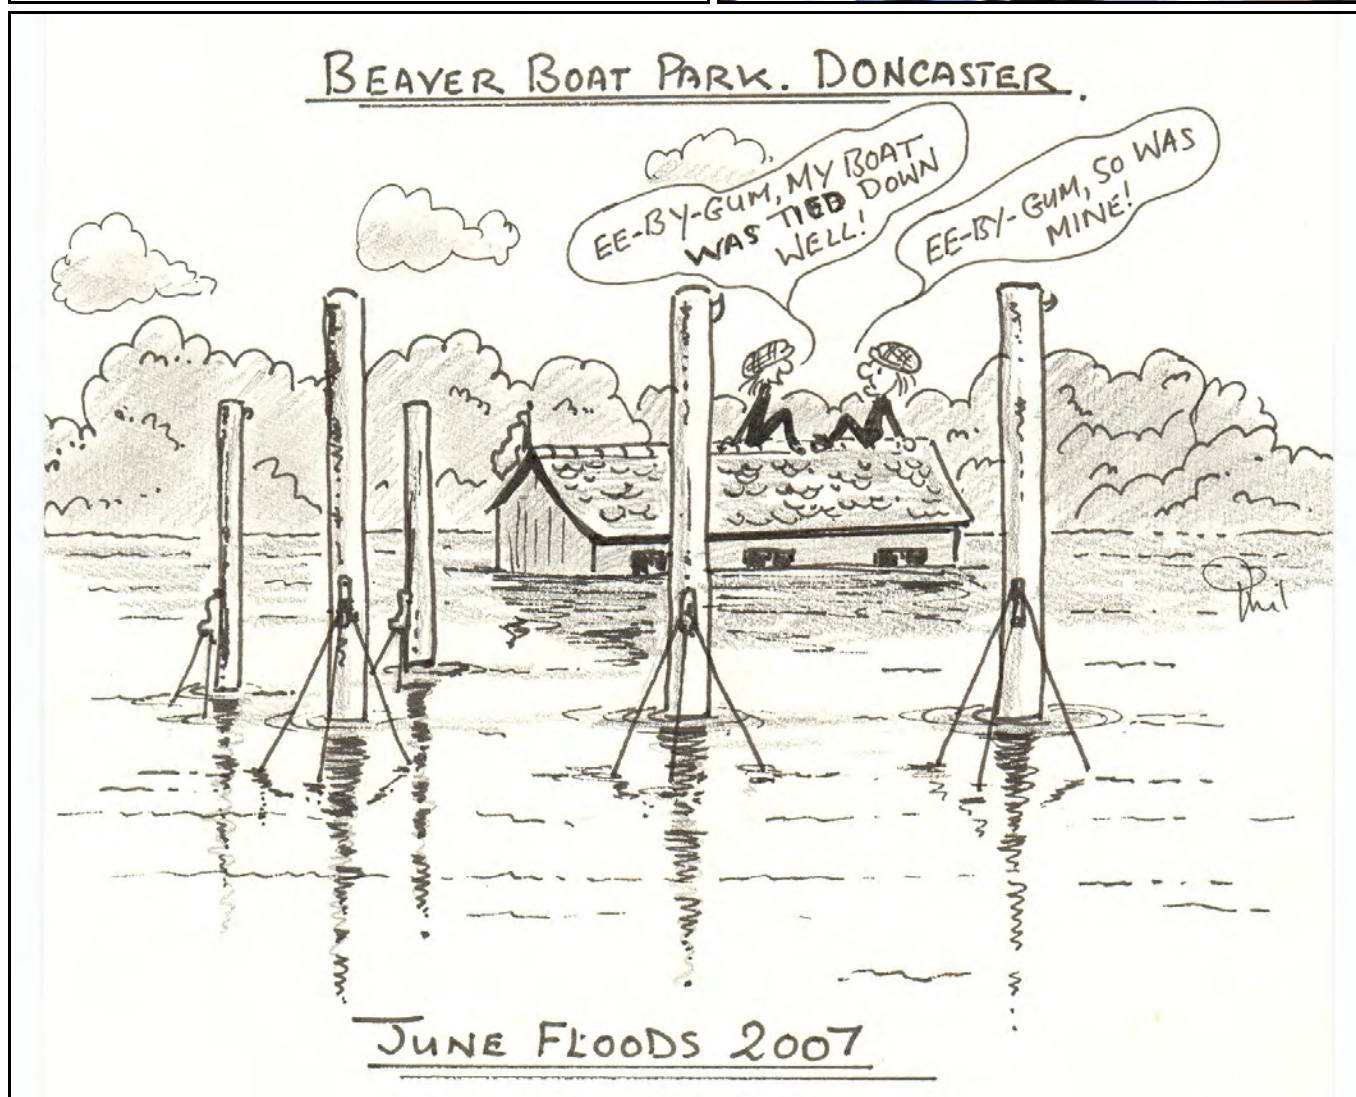 BEAVER BOAT PARK. DONCASTER.
EE-BY-GUM, MY BOAT
WAS TIED DOWN
WELL!
EE-BY-GUM, SO WAS
MINE!
Phil
JUNE FLOODS 2007